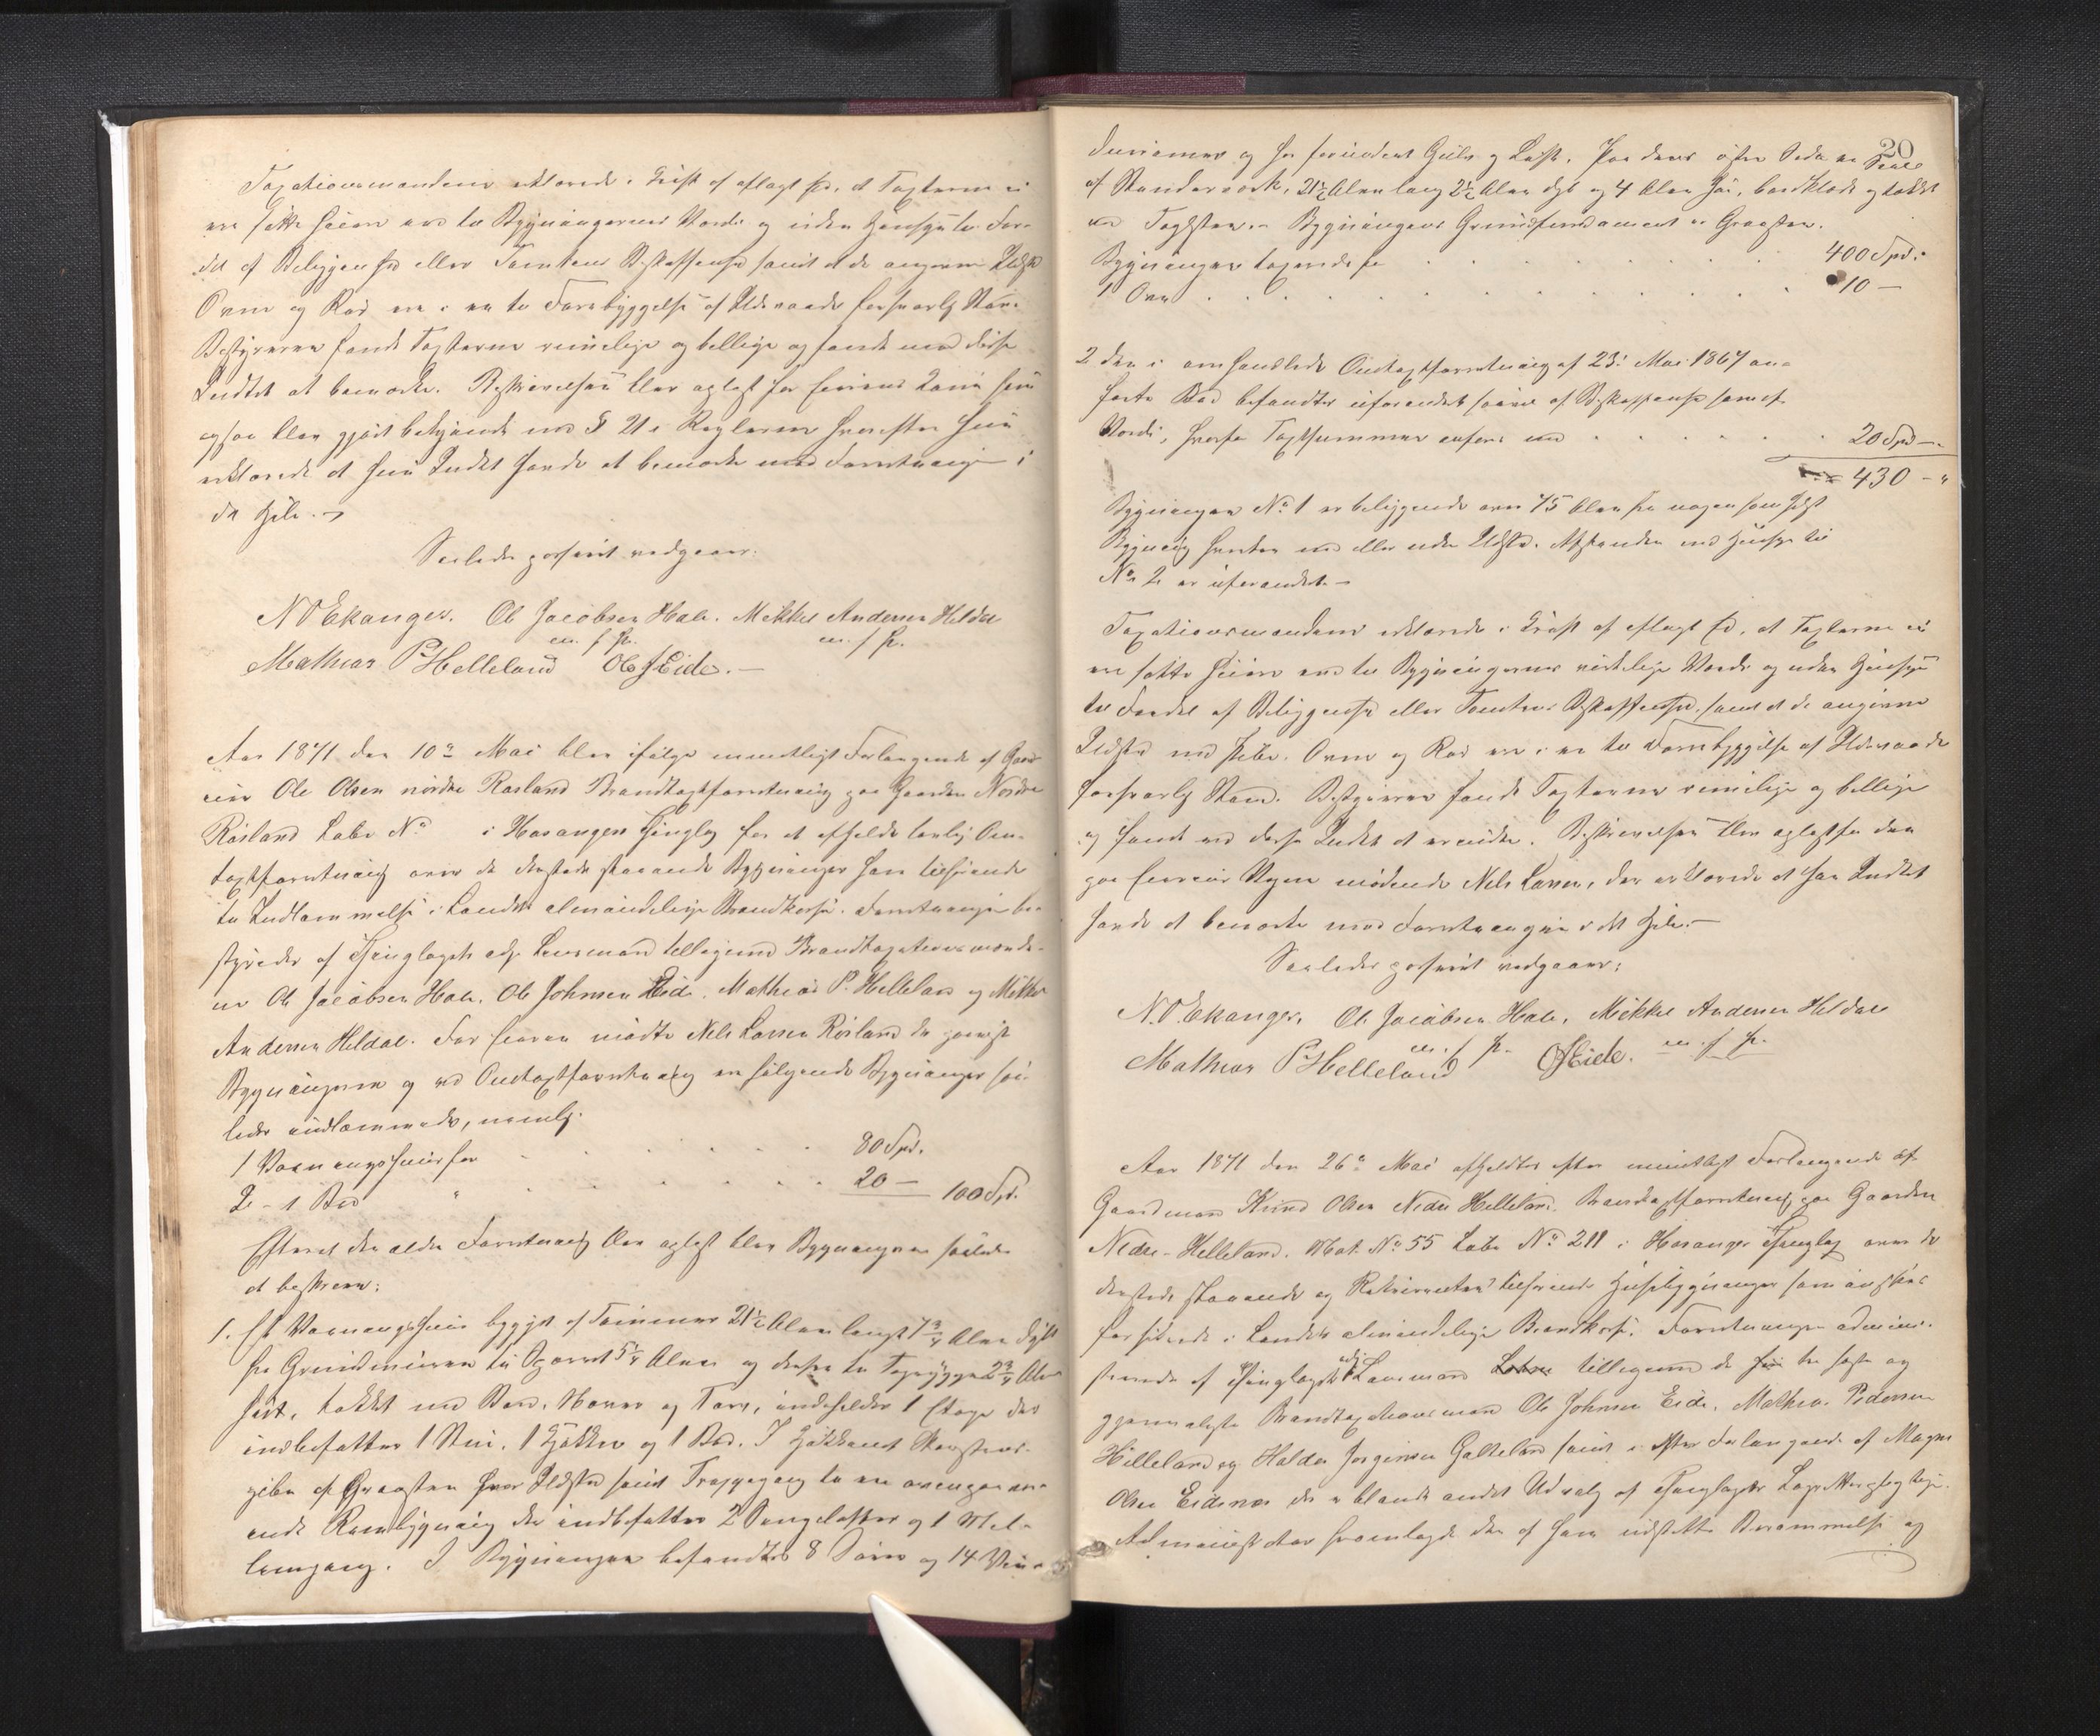 Taxationsmændene erklærede i Kraft af aflagt Ed, at Taxterne ei
ere satte høiere end til Bygningernes Værdi og uden Hensyn til For-
del af Beliggenhed eller Tomtens Beskaffenhed samt at de angivne Ildsted
Ovne og Rør ere i en til Forebyggelse af Ildsvaade forsvarlig Stand.
Bestyreren fandt Taxterne rimelige og billige og fandt ved disse
Intet at bemærke. Beskrivelsen blev oplæst for Eierens
ogsaa blev gjort bekjendt med § 21 i hvorefter hun
erklærede at hun Intet havde at bemærke ved Forretningen i
det Hele. –
Saaledes passeret vedgaaer:
N O Ekanger. Ole Jacobsen Hole. Mikkel Andersen Heldal
m. f. P. m. f. P.
Mathias P Helleland Ole J Eide. –
Aar 1871 den 10de Mai blev ifølge mundtligt Forlangende af Gaard-
eier Ole Olsen nordre Røsland Brandtaxtforretning paa Gaarden Nordre
Røsland Løbe No i Hosanger Thinglag for at afholde lovlig Om-
taxtforretning over de dersteds staaende Bygninger ham tilhørende
til Indlemmelse i Landets almindelige Brandkasse. Forretningen be-
styredes af Thinglagets adj. Lensmand tilligemed Brandtaxationsmænde-
ne Ole Jacobsen Hole, Ole Johnsen Eide, Mathias P. Helleland og Mikkel
Andersen Heldal. For Eieren mødte Nels Larsen Røsland der paaviste
Bygningerne og ved Omtaxtforretning ere følgende Bygninger saa-
ledes indlemmede, nemlig:
1 Vaaningshuus for . . . . . 80 Spd.
2 – 1 Bod " . . . . . 20 – 100 Spd.
Efterat den ældre Forretning blev oplæst blev Bygningerne saaledes
at beskrive:
1. Et Vaaningshuus bygget af Tømmer 21½ Alen langt 7¾ Alen dybt
fra Grundmuren til Øverst 5¾ Alen og derfra til Tagryggen 2¾ Alen
høit, tækket med Bord, Næver og Torv, indeholder 1 Etage der
indbefatter 1 Stue, 1 Kjøkken og 1 Bod. I Kjøkkenet Skorsteens-
pibe af Graasteen hvor Ildsted samt Trappegang til en ovenpaa væ-
rende Rambygning der indbefatter 2 Sengelofter og 1 Mel-
lemgang. I Bygningen befandtes 8 Døre og 14 Vin-
20
duerammer og for forsvarlig Gulv og Loft. Paa dens østre Side en Sval
af Standerværk, 21½ Alen lang 2½ Alen dyb og 4 Alen høi, bordklædt og tækket
med Tagsteen. – Bygningens Grundfundament er Graasteen.
Bygningen taxeredes for . . . . . 400 Spd.
1 Ovn . . . . . 10 –
2 den i omhandlede Omtaxtforretning af 23de Mai 1867 an-
førte Bod befandtes uforandret saavel af Beskaffenhed som af
Værdi, hvorfor Taxtsummen anføres med . . . . . 20 Spd –
430 – "
Bygningen No 1 er beliggende over 75 Alen fra nogen som helst
Bygning hverken med eller uden Ildsted. Afstanden med Hensyn til
No 2 er uforandret. –
Taxationsmændene erklærede i Kraft af aflagt Ed, at Taxterne ei
ere satte høiere end til Bygningernes virkelige Værdi og uden Hensyn
til Fordel af Beliggenhed eller Tomtens Beskaffenhed, samt at de angivne
Ildsted med Piber, Ovne og Rør ere i en til Forebyggelse af Ildsvaade
forsvarlig Stand. Bestyreren fandt Taxterne rimelige og billige
og fandt ved disse Intet at erindre. Beskrivelsen blev oplæst for den
paa Eierens Vegne mødende Nels Larsen, der erklærede at han Intet
havde at bemærke mod Forretningen i det Hele. –
Saaledes passeret vedgaaer:
N. O. Ekanger. Ole Jacobsen Hole, Mikkel Andersen Heldal
m. f. P. m. f. P.
Mathias P Helleland O J Eide.
Aar 1871 den 26de Mai afholdtes efter mundtligt Forlangende af
Gaardmand Knud Olsen Nedre Helleland Brandtaxtforretning paa Gaarden
Nedre-Helleland. Mat. No 55 Løbe No 211 i Hosanger Thinglag over de
dersteds staaende og Rekvirenten tilhørende Huusbygninger som ønskes
forsikrede i Landets almindelige Brandkasse. Forretningen admini-
streredes af Thinglagets adj. Lensmand tilligemed de tre faste og
Brandtaxationsmænd Ole Johnsen Eide, Mathias Pedersen
Helleland og Haldor Jørgensen Galteland samt efter Forlangende af Magne
Olsen Eidsnes der er blandt andet Udvalg af Thinglagets
Administrator fremlagde den af ham udstedte Berammelse og